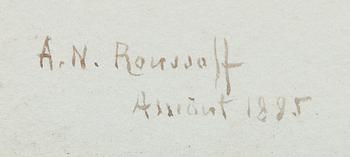 A.N. Roussoff
Assiout 1885